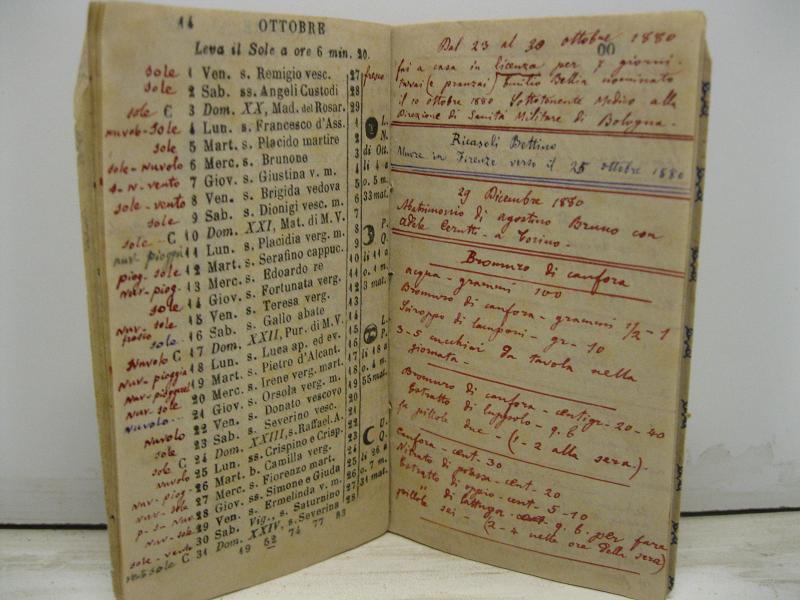 14 OTTOBRE
Leva il Sole a ore 6 min. 20.
sole 1 Ven. s. Remigio vesc. 27 fresco
sole 2 Sab. ss. Angeli Custodi 28
sole C 3 Dom. XX, Mad. del Rosar. 29
nuvolo-sole 4 Lun. s. Francesco d'Ass. 1 L.
sole 5 Mart. s. Placido martire 2 N.
sole-nuvolo 6 Merc. s. Brunone 3 di Ott.
s.-n.-vento 7 Giov. s. Giustina v. m. 4 li 4 a
sole-vento 8 Ven. s. Brigida vedova 5 o. 5 m.
sole 9 Sab. s. Dionigi vesc. m. 6 33 mat.
sole C 10 Dom. XXI, Mat. di M. V. 7
nuv-pioggia 11 Lun. s. Placidia verg. m. 8 P.
piog-sole 12 Mart. s. Serafino cappuc. 9 Q.
nuv-piog. 13 Merc. s. Edoardo re 10 li 11 a
sole 14 Giov. s. Fortunata verg. 11 o. 1 m.
nuv-sole 15 Ven. s. Teresa verg. 12 3 mat.
fresco sole 16 Sab. s. Gallo abate 13
Nuvolo C 17 Dom. XXII, Pur. di M. V. 14 L.
nuv-pioggia 18 Lun. s. Luca ap. ed ev. 15 P.
nuv-pioggia 19 Mart. s. Pietro d'Alcant. 16 li 18 a
nuv-sole 20 Merc. s. Irene verg. mart. 17 o. 4 m.
nuvolo 21 Giov. s. Orsola verg. m. 18 55 mat.
nuvolo 22 Ven. s. Donato vescovo 19
sole 23 Sab. s. Severino vesc. 20
sole C 24 Dom. XXIII, s. Raffael. A. 21 U.
nuvolo 25 Lun. ss. Crispino e Crisp. 22 Q.
nuv-piog 26 Mart. b. Camilla verg. 23 li 26 a
p-s-nuv 27 Merc. s. Fiorenzo mart. 24 o. 7 m.
nuv-sole 28 Giov. ss. Simone e Giuda 25 31 mat.
29 Ven. s. Ermelinda v. m. 26
sole-vento 30 Sab. Vig., s. Saturnino 27
sole C 31 Dom. XXIV, s. Severina 28
19 52 74 77 83
00
Dal 23 al 30 ottobre 1880
fui a casa in licenza per 7 giorni.
trovai (e pranzai) Emilio Bellia nominato
il 10 ottobre 1880 Sottotenente Medico alla
Direzione di Sanità Militare di Bologna.
Ricasoli Bettino
Muore in Firenze verso il 25 ottobre 1880
29 Dicembre 1880
Matrimonio di Agostino Bruno con
Adele Cerutti - a Torino.
Bromuro di canfora
acqua - grammi 100
Bromuro di canfora - grammi 1/2 - 1
Sciroppo di lamponi - gr - 10
3-5 cucchiai da tavola nella
giornata.
Bromuro di canfora - centigr - 20 - 40
Estratto di luppolo - q. b
fa pillole due - (1 - 2 alla sera)-
Canfora - cent - 30
Nitrato di potassa - cent - 20
Estratto di oppio - cent - 5-10
di lattuga - q. b. per fare
pillole sei - (2-4 nelle ore della sera)